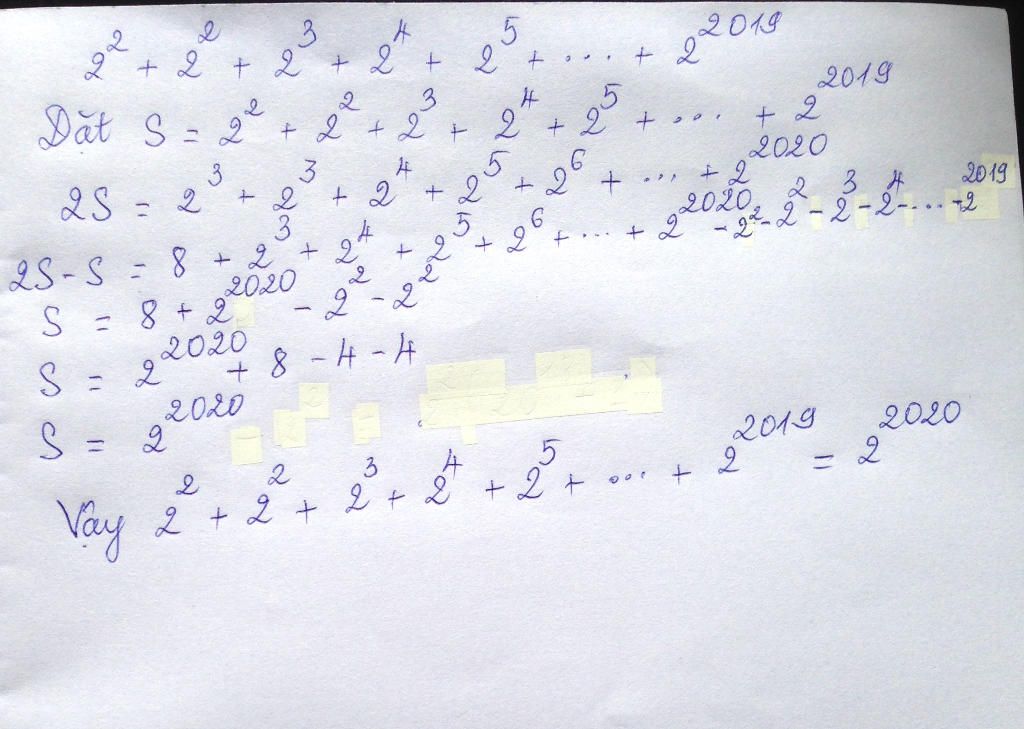 2² + 2² + 2³ + 2⁴ + 2⁵ + ... + 2²⁰¹⁹
Đặt S = 2² + 2² + 2³ + 2⁴ + 2⁵ + ... + 2²⁰¹⁹
2S = 2³ + 2³ + 2⁴ + 2⁵ + 2⁶ + ... + 2²⁰²⁰
2S - S = 8 + 2³ + 2⁴ + 2⁵ + 2⁶ + ... + 2²⁰²⁰ - 2² - 2² - 2³ - 2⁴ - ... - 2²⁰¹⁹
S = 8 + 2²⁰²⁰ - 2² - 2²
S = 2²⁰²⁰ + 8 - 4 - 4
S = 2²⁰²⁰
Vậy 2² + 2² + 2³ + 2⁴ + 2⁵ + ... + 2²⁰¹⁹ = 2²⁰²⁰